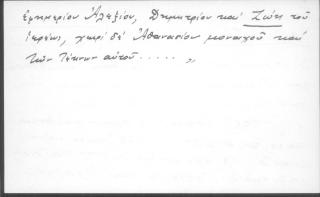 ἐφημερίου Ἀλεξίου, Δημητρίου καί Ζώης τοῦ
ἱερέως, χωρί δέ Ἀθανασίου μοναχοῦ καί
τῶν τέκνων αὐτοῦ ..... „